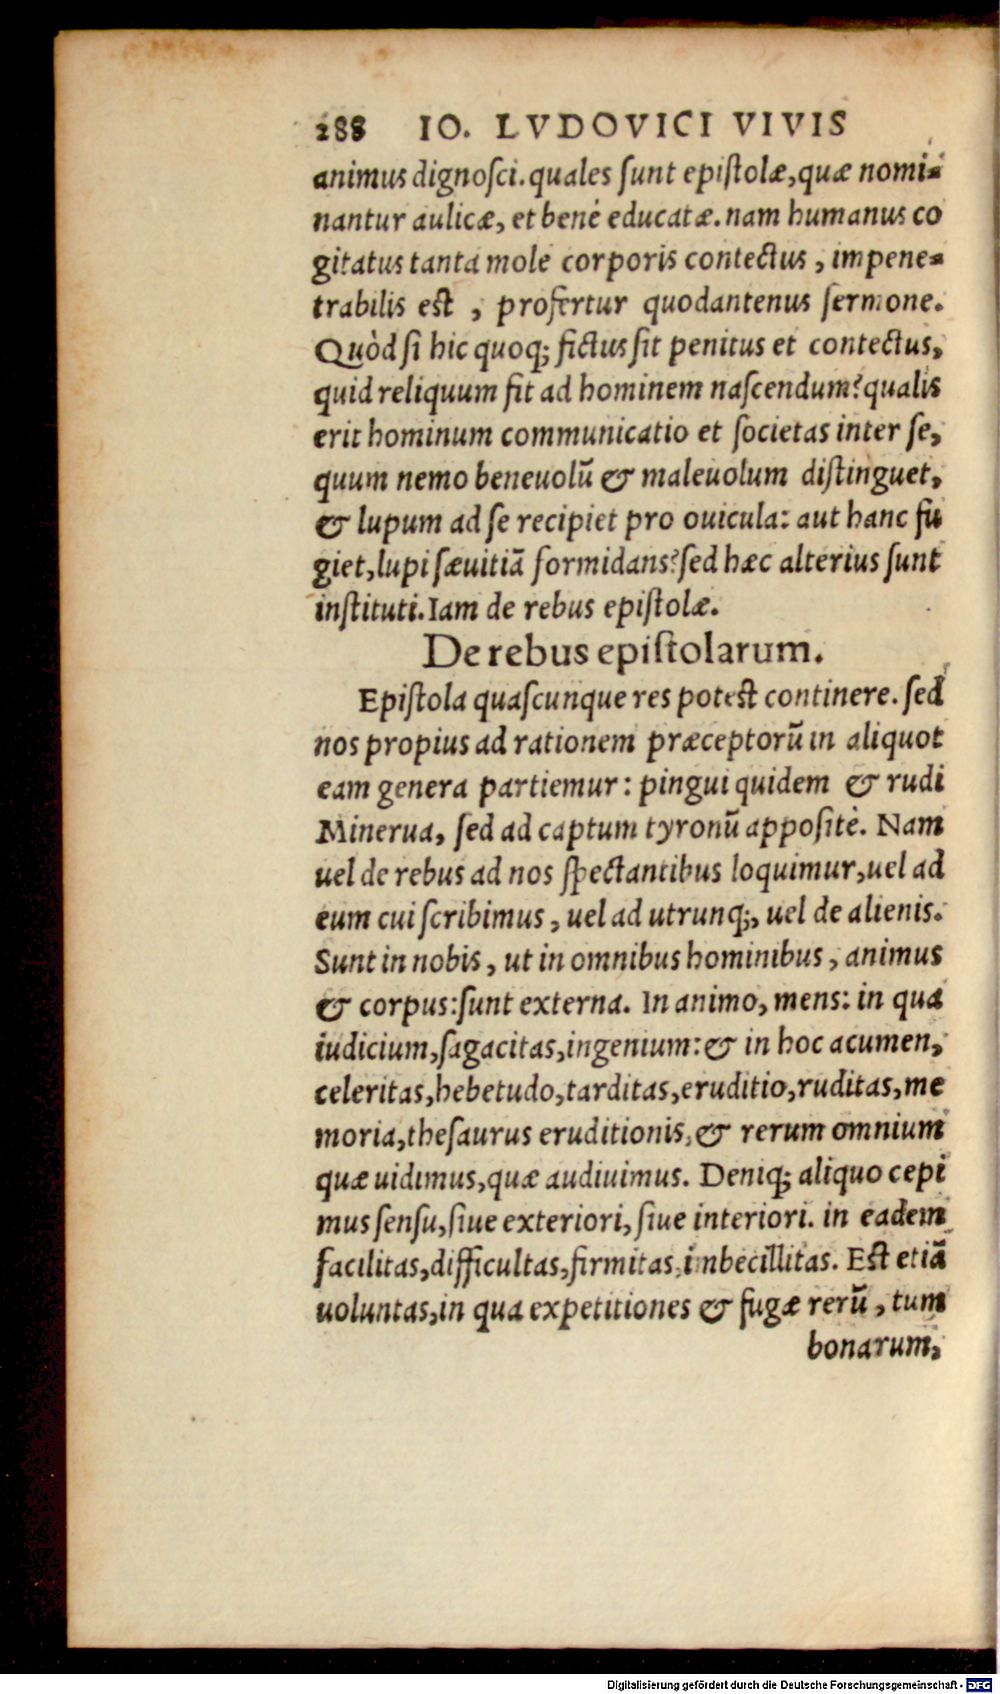 288 IO. LVDOVICI VIVIS
animus dignosci. quales sunt epistolæ, quæ nomi-
nantur aulicæ, et benè educatæ. nam humanus co
gitatus tanta mole corporis contectus, impene-
trabilis est, profertur quodantenus sermone.
Quòd si hic quoq; fictus sit penitus et contectus,
quid reliquum fit ad hominem nascendum? qualis
erit hominum communicatio et societas inter se,
quum nemo beneuolũ & maleuolum distinguet,
& lupum ad se recipiet pro ouicula: aut hanc fu
giet, lupi sæuitiã formidans? sed hæc alterius sunt
instituti. Iam de rebus epistolæ.
De rebus epistolarum.
Epistola quascunque res potest continere. sed
nos propius ad rationem præceptorũ in aliquot
eam genera partiemur: pingui quidem & rudi
Minerua, sed ad captum tyronũ appositè. Nam
uel de rebus ad nos spectantibus loquimur, uel ad
eum cui scribimus, uel ad utrunq;, uel de alienis.
Sunt in nobis, ut in omnibus hominibus, animus
& corpus: sunt externa. In animo, mens: in qua
iudicium, sagacitas, ingenium: & in hoc acumen,
celeritas, hebetudo, tarditas, eruditio, ruditas, me
moria, thesaurus eruditionis, & rerum omnium
quæ uidimus, quæ audiuimus. Deniq; aliquo cepi
mus sensu, siue exteriori, siue interiori. in eadem
facilitas, difficultas, firmitas, imbecillitas. Est etiã
uoluntas, in qua expetitiones & fugæ rerũ, tum
bonarum,
Digitalisierung gefördert durch die Deutsche Forschungsgemeinschaft - DFG